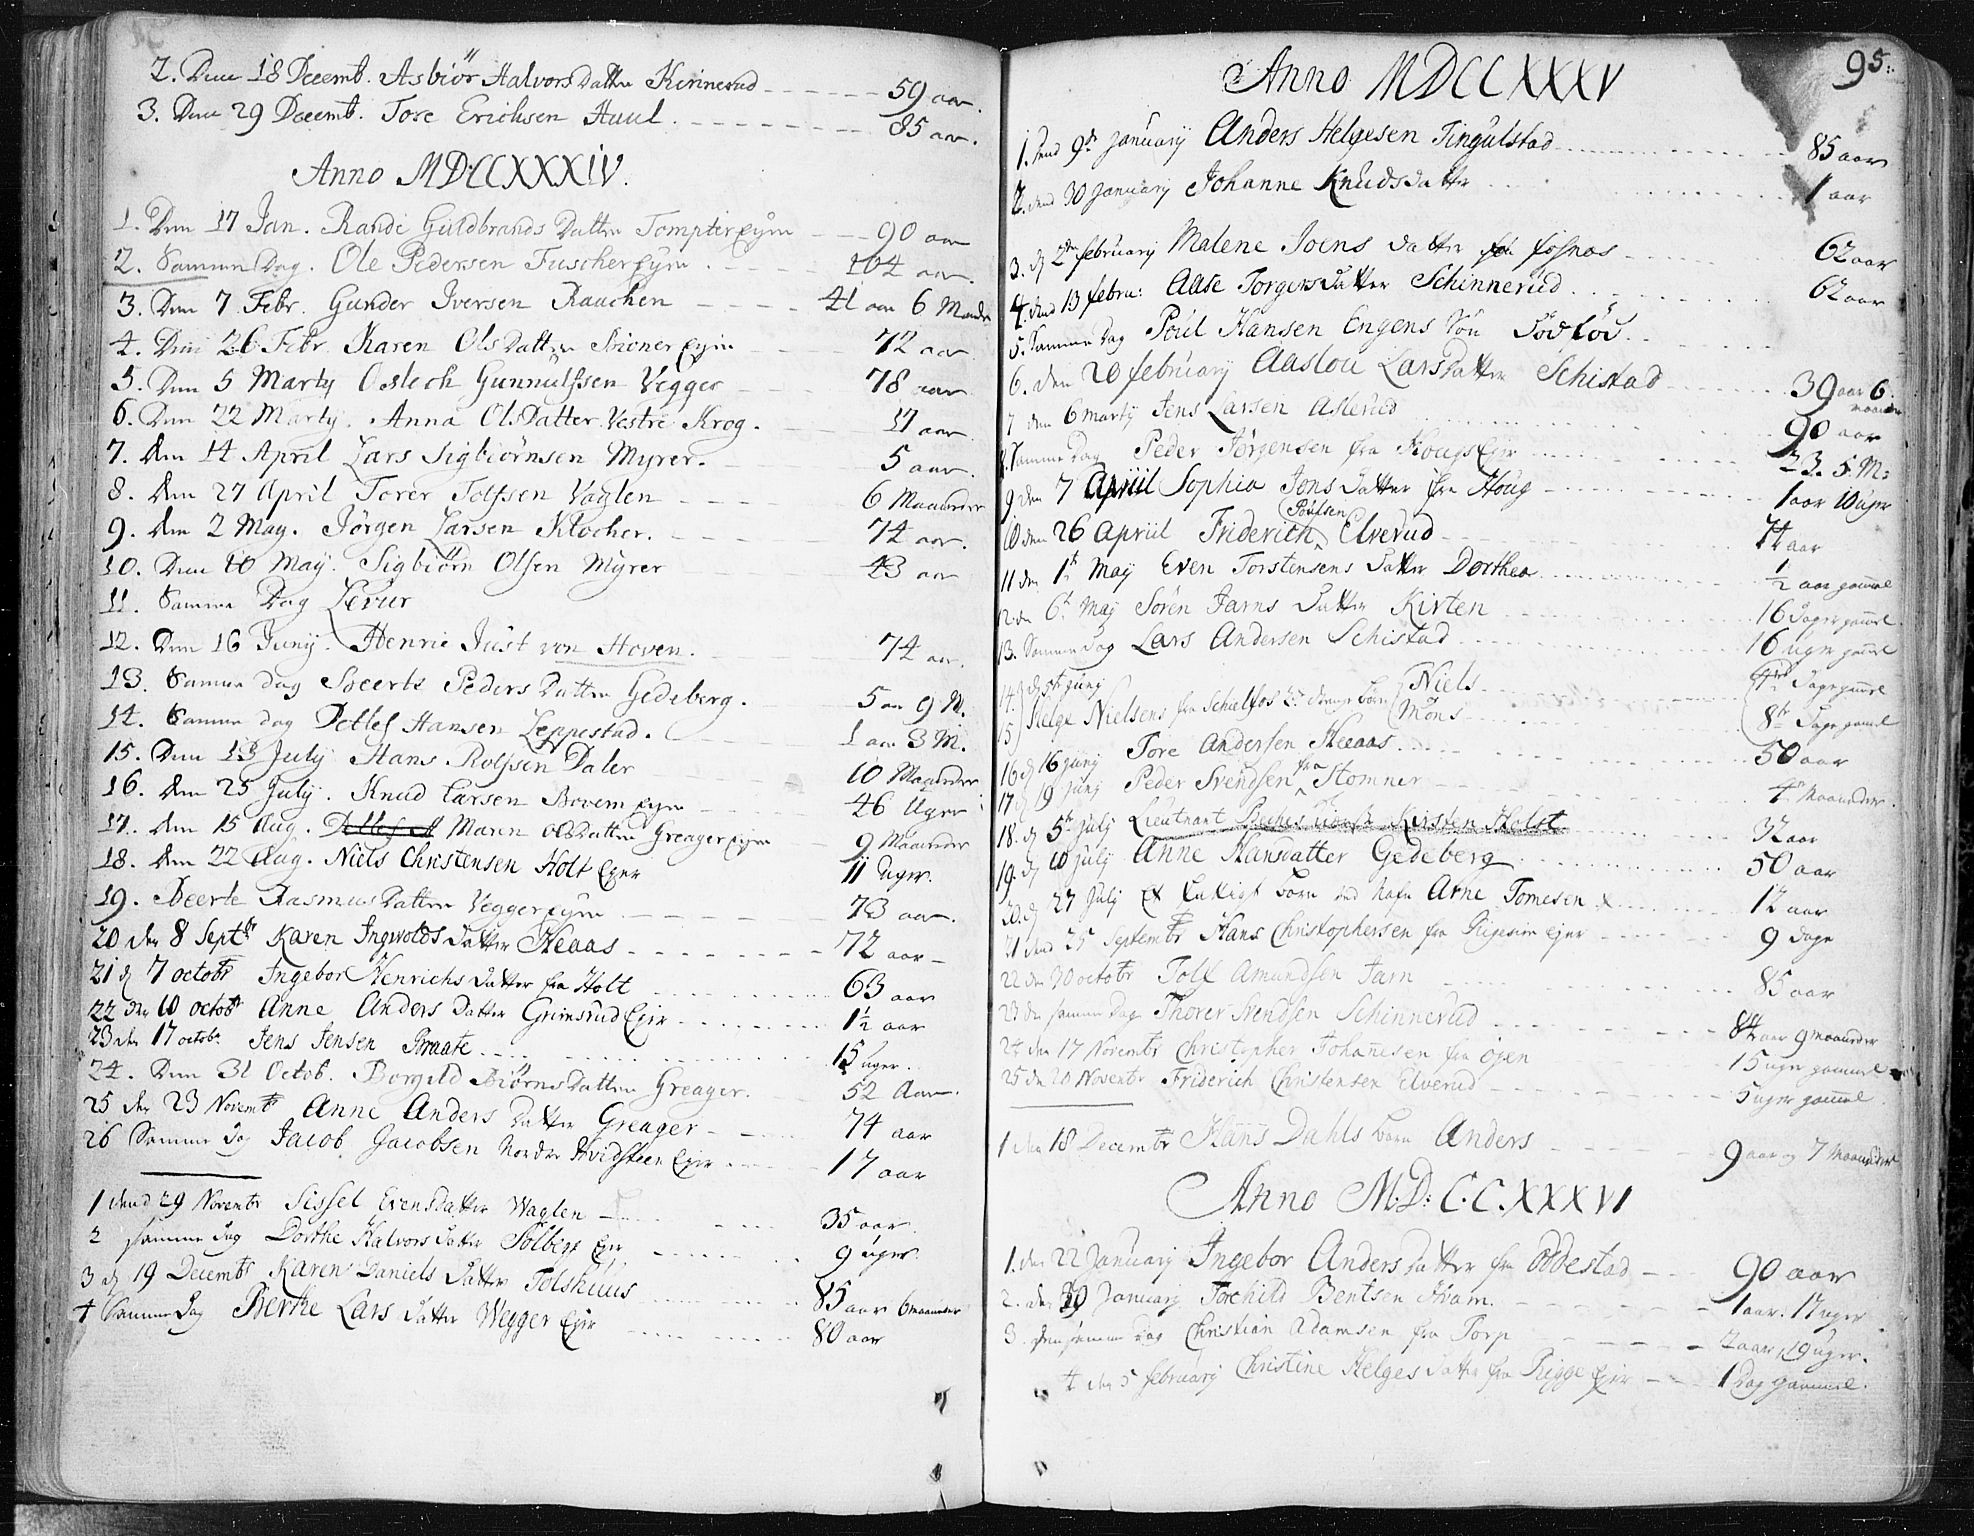 2. Den 18 Decemb. Asbiör Halvors Datter Kinnerud - - - - - - 59 aar.
3. Den 29 Decemb. Tore Erichsen Huul. - - - - - - 85 aar.
Anno MDCCXXXIV.
1. Den 17 Jan. Rande Guldbrands Datter Tompter Eÿe - - 90 aar
2. Samme Dag. Ole Pedersen Fuscher Eÿe. - - - 104 aar.
3. Den 7 Febr. Gunder Iversen Rauchen - - - 41 aar 6 Maaneder
4. Den 26 Febr. Karen Ols Datter Eÿe - - 72 aar
5. Den 5 Martÿ Oslech Gunnulfsen Vegger - - 78 aar
6. Den 22 Martÿ. Anna Ols Datter Vestre Krog. - - 17 aar
7. den 14 April Lars Sigbiörnsen Myrer. - - 5 aar.
8. Den 27 April Torer Tolfsen Vaglen - - 6 Maaneder
9. den 2 May. Jörgen Larsen Klocher. - - - 74 aar.
10. Den 10 May. Sigbiörn Olsen Myrer - - 43 aar
11. Samme Dag Levur
12. Den 16 Junÿ. Henric Just von Hoven. - - 74 aar.
13. Samme dag Beerte Peders Datter Gedeberg. - 5 aar 9 M.
14. Samme dag Detlef Hansen Leppestad. - - 1 aar 3 M.
15. Den 13 July Hans Rolfsen Daler - - 10 Maaneder
16. den 25 July. Knud Larsen Bovem Eÿe - - 46 Uger
17. den 15 Aug. Maren Ols Datter Greager Eÿe - 9 Maaneder
18. den 22 Aug. Niels Christensen Holt Eyer 11 Uger.
19. Beerte Rasmus Datter Vegger Eÿe - - - - 73 aar.
20 den 8 Septbr Karen Ingwolds Datter Heaas - - - - 72 aar -
21 d 7 octobr Ingebor Henrichs Datter fra Holt - - - - 63 aar
22 den 10 octobr Anne Anders Datter Grimsrud Eyer - - - 1½ aar
23 den 17 octobr. Jens Jensen Braate - - - - 15 uger.
24. Den 31 Octob. Borgild Biörns Datter Greager. - - 52 Aar.
25 den 23 Novembr Anne Anders Datter Greager - - - 74 aar
26 Samme dag Jacob Jacobsen Nordre Hvidsteen Eyer - - - 17 aar
1 dend 29 Novembr Sissel Evensdatter Waglen - - - 35 aar.
2 samme dag Dorthe Halvors datter Solberg Eyer - - - 9 uger.
3 d 19 Decembr Karen Daniels Datter Tolshuus - - - 85 aar 6 maaneder
4 Samme dag Berthe Lars datter Wegger Eyer - - - 80 aar
95.
Anno MDCCXXXV
1. dend 9de Januarÿ Anders Helgesen Tingulstad - - - 85 aar
2. dend 30 Januarÿ Johanne Knudsdatter - - - 1 aar
3. d 2den februarÿ Malene Joens datter fra fosnas - - - 62 aar
4. dend 13 febru: Aase Torgersdatter Schinnerud - - - 62 aar
5. Samme dag Poul Hansen Engens Sön - - -
6. den 20 februarÿ Aaslou Larsdatter Schistad - - - 39 aar 6 maaneder
7 den 6 martÿ Jens Larsen Aslerud - - - 90 aar
8. Samme dag Peder Jörgensen fra Hougs Eyer - - - 23. 5 M:
9 den 7 Apriil Sophia Jons datter fra Houg - - - 1 aar 10 uger
Poulsen
10 den 26 Apriil Friderich Elverud - - - 74 aar
11 den 1te Maÿ Even Torstensens datter Dorthea - - - ½ aar gammel
12 den 6te Maÿ Sören Jarns datter Kirsten - - - 16 dager gammel
13. Samme dag Lars Andersen Schistad - - - 16 uger gammel
14. d 5te Junÿ Niels - - - dage gammel
15 Helge Nielsens fra Schielfos Mons - - - 8te dage gammel
16 d 16 Junÿ Tore Andersen Heeaas - - - 50 aar
17 d 19 Junÿ Peder Svendsen fra Stomner - - - 4 Maaneder.
18. d 5te Julÿ Lieutnant Kirsten Holst - - - 32 aar
19. d 10 Julÿ Anne Hansdatter Gedeberg - - - 50 aar
20. d 27 Julÿ Et fattigt barn ved nafn Arne Tomesen - - 12 aar
21 dend 25 Septembr Hans Christophersen fra Eyer - - - 9 dage
22 den 30 octobr Tolf Amundsen Jarn - - - 85 aar
23 den samme dag Thorer Svendsen Schinnerud - - - 84 aar 9 maaneder
24 den 17 Novembr Christopher Johannesen fra Öyen - - - 15 uger gammel
25 den 20 Novembr Friderich Christensen Elverud - - - 5 uger gammel.
1 den 18 Decembr Hans Dahls barn Anders - - - 9 aar og 7 Maaneder
Anno M.D.C.C.XXXVI
1. den 22 Januarÿ Ingebor Anders datter fra Oddestad - - 90 aar
2. den 29 Januarÿ Torchild Bentsen Hvam. - - - 1 aar. 17 uger
3. den samme dag Christian Adamsen fra Torp - - - 2 aar, 19 uger.
4 den 5 februarÿ Christine Helges datter fra Rigge Eyer - - - 1 Dag gammel.